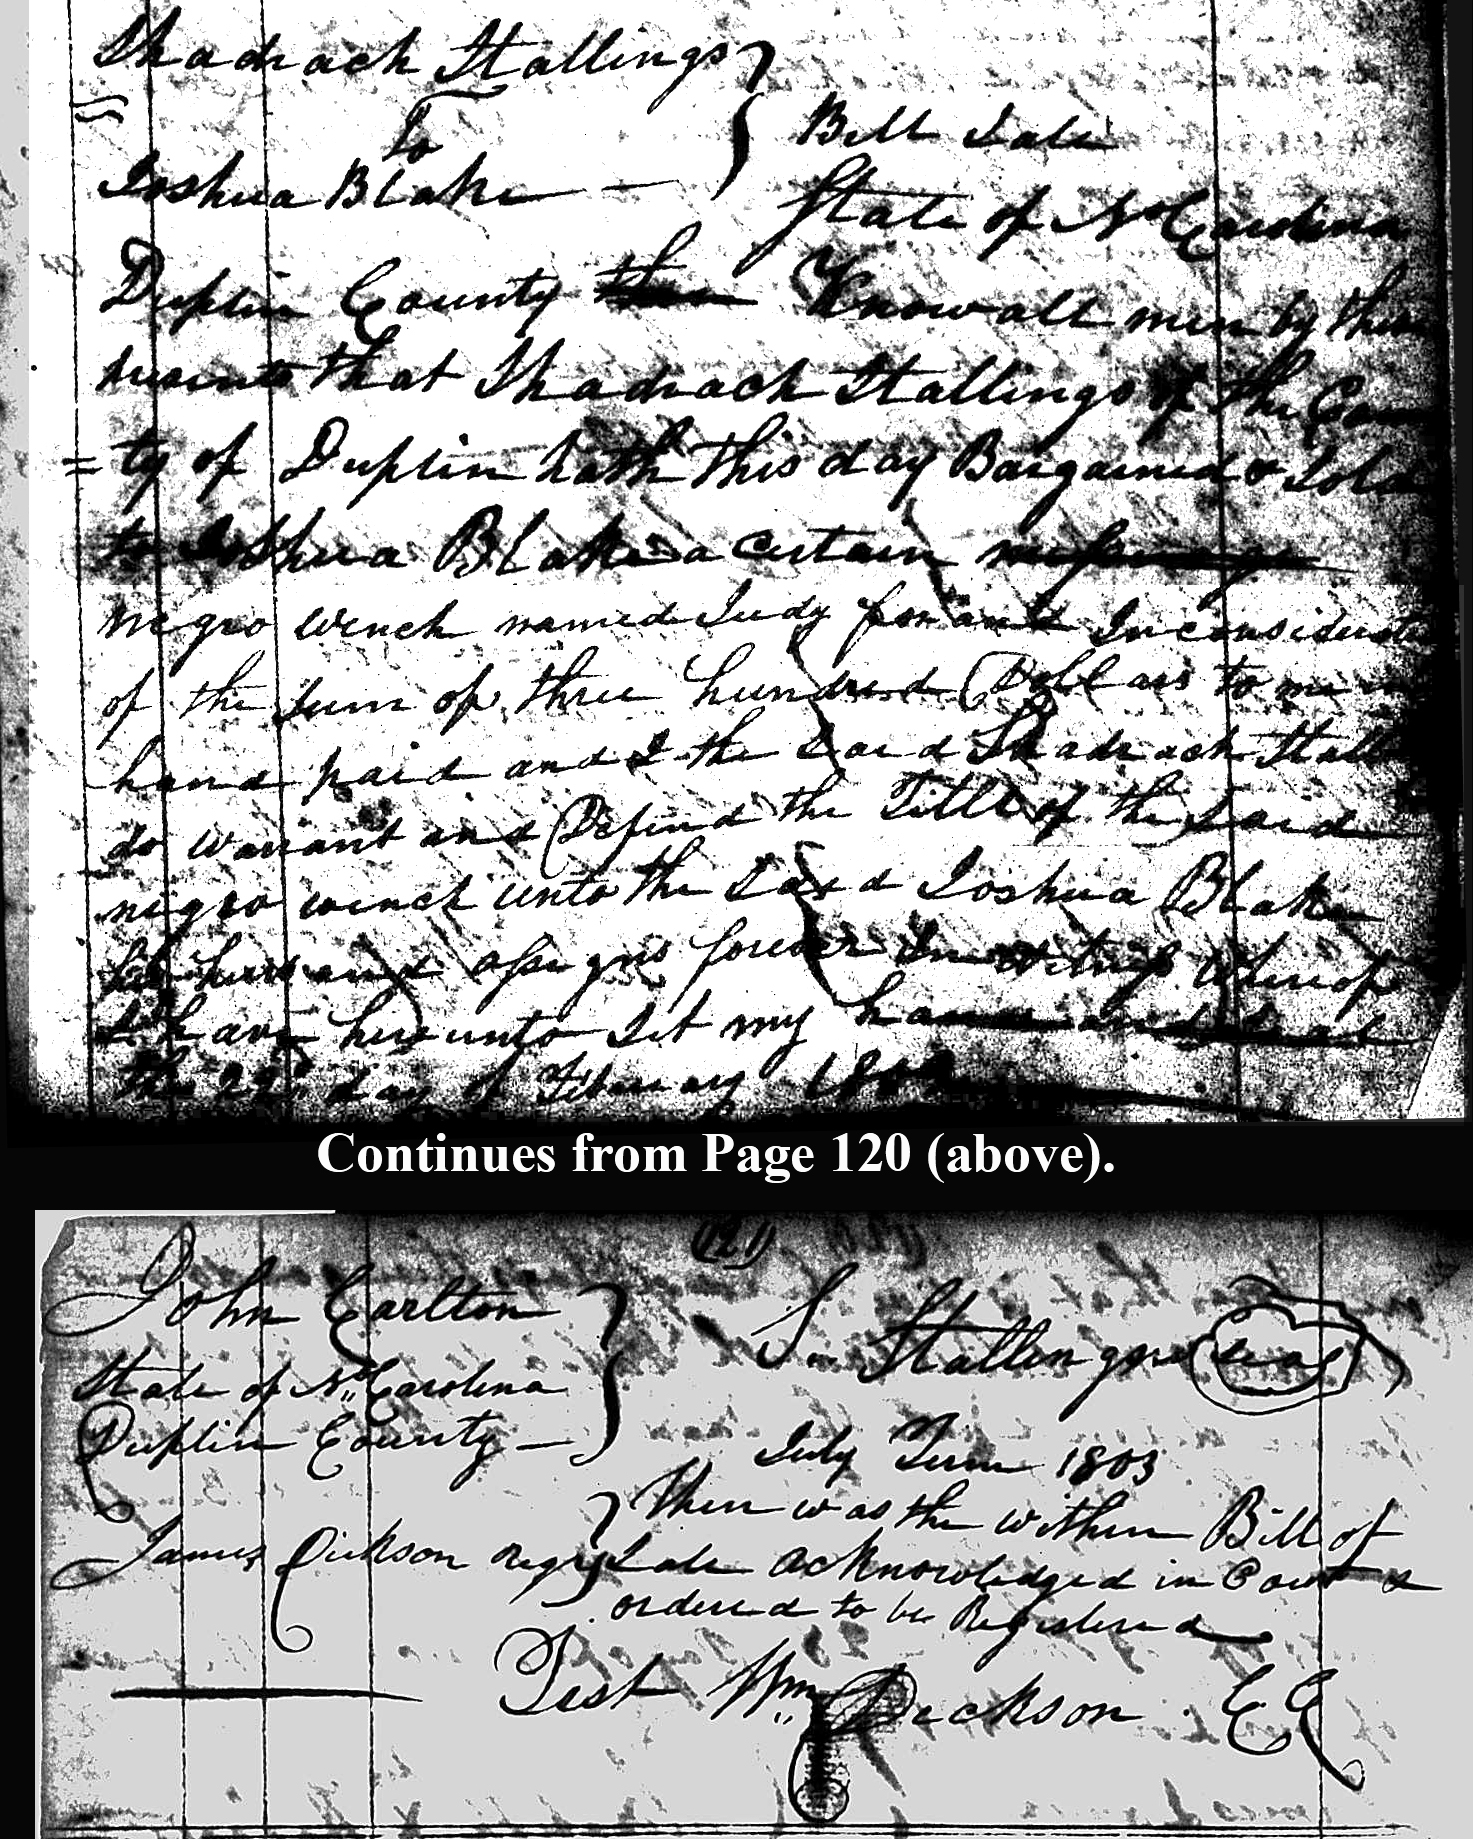 Shadrach Stallings
To
Joshua Blake
Bill Sale
State of No Carolina
Duplin County Know all men by these
presents that Shadrach Stallings of the Coun
=ty of Duplin hath this day Bargained & Sold
to Joshua Blake a certain
negro wench named Judy for and In consideration
of the sum of three hundred Dollars to me in
hand paid and I the Said Shadrach Stall
do warrant and Defend the Title of the Said
negro wench unto the Said Joshua Blake
his heirs and assigns forever In witness whereof
I have hereunto Set my hand and Seal
the 22d day of February 1803
Continues from Page 120 (above).
(121)
John Carlton
S. Stallings seal
State of No Carolina
Duplin County
July Term 1803
Then was the within Bill of
James Dickson Regr Sale acknowledged in Court &
ordered to be Registered
Test Wm Dickson CC